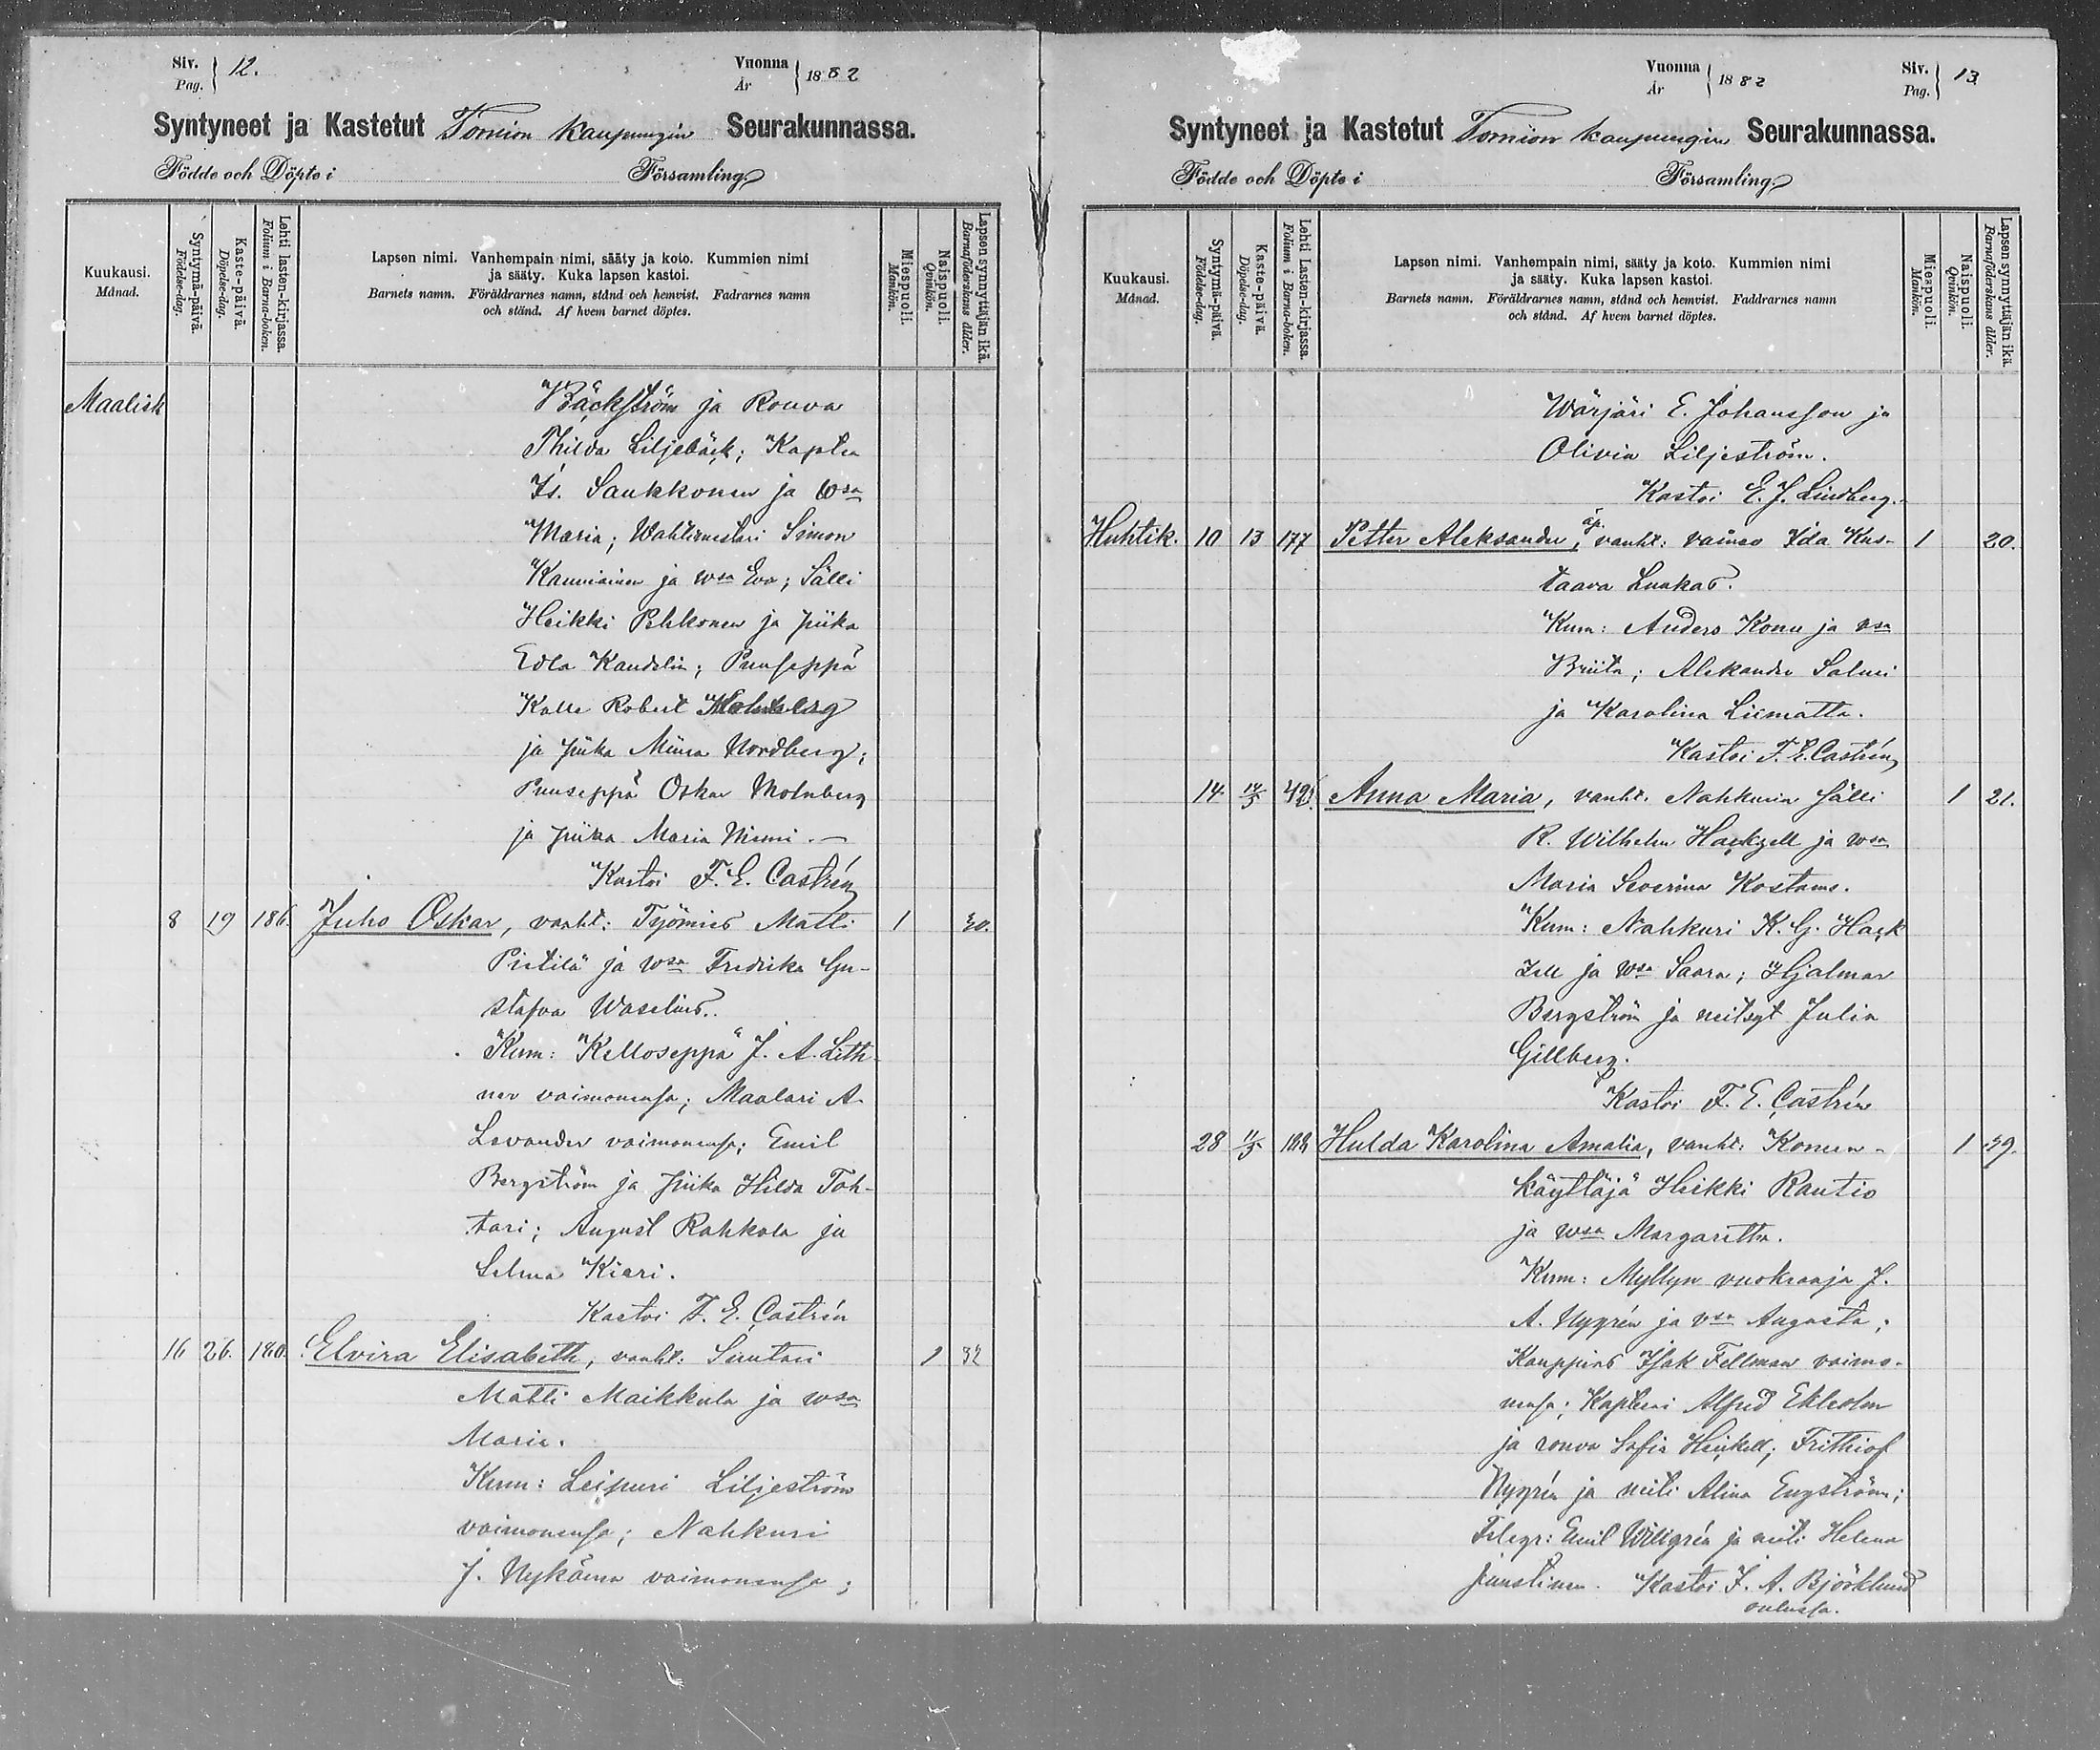 Siv. Pag. } 12. Vuonna År } 1882
Syntyneet ja Kastetut Tornion kaupungin Seurakunnassa.
Födde och Döpte i Församling.
Kuukausi. Månad.
Syntymä-päivä. Födelse-dag.
Kaste-päivä. Döpelse-dag.
Lehti lasten-kirjassa. Folium i Barna-boken.
Lapsen nimi. Vanhempain nimi, sääty ja koto. Kummien nimi
ja sääty. Kuka lapsen kastoi.
Barnets namn. Föräldrarnes namn, stånd och hemvist. Fadrarnes namn
och stånd. Af hvem barnet döptes.
Miespuoli. Mankön.
Naispuoli. Qvinkön.
Lapsen synnyttäjän ikä. Barnaföderskans ålder.
Maalisk Bäckström ja Rouva
Thilda Liljebäck; Kapten
Is. Saukkonen ja wsa
Maria; Wahtimestari Simon
Kauniainen ja wsa Eva; Sälli
Heikki Pehkonen ja piika
Edla Kandelin; Puuseppä
Kalle Robert
ja piika Miina Nordberg;
Puuseppä Oskar Molnberg
ja piika Maria Niemi. —
Kastoi F. E. Castrén
8 19 186. Juho Oskar, vanht: Työmies Matti 1 30.
Pietilä ja wsa Fredrika Gu-
stafva Waselius.
Kum: Kelloseppä J. A. Lith-
ner vaimonensa; Maalari A.
Lavander vaimonensa; Emil
Bergström ja piika Hilda Toh-
tari; August Rahkola ja
Selma Kieri.
Kastoi F. E. Castrén
16 26. 180. Elvira Elisabeth, vanht: Suutari 1 32
Matti Maikkula ja wsa
Maria.
Kum: Leipuri Liljeström
vaimonensa; Nahkuri
J. Nykänen vaimonensa;
Vuonna År } 1882 Siv. Pag. } 13
Syntyneet ja Kastetut Tornion kaupungin Seurakunnassa.
Födde och Döpte i Församling.
Kuukausi. Månad.
Syntymä-päivä. Födelse-dag.
Kaste-päivä. Döpelse-dag.
Lehti Lasten-kirjassa. Folium i Barna-boken.
Lapsen nimi. Vanhempain nimi, sääty ja koto. Kummien nimi
ja sääty. Kuka lapsen kastoi.
Barnets namn. Föräldrarnes namn, stånd och hemvist. Faddrarnes namn
och stånd. Af hvem barnet döptes.
Miespuoli. Mankön.
Naispuoli. Qvinkön.
Lapsen synnyttäjän ikä. Barnaföderskans ålder.
Wärjäri E. Johansson ja
Olivia Liljeström.
Kastoi E. J. Lindberg.
Huhtik. 10 13 177 Petter Aleksander, äp. vanht: vaimo Ida Kus- 1 20.
taava Luukas.
Kum: Anders Konu ja wsa
Briita; Aleksander Salmi
ja Karolina Liimatta.
Kastoi F. E. Castrén
14 14/5 Anna Maria, vanht. Nahkurin sälli 1 21.
R. Wilhelm Hackzell ja wsa
Maria Severina Kostamo.
Kum: Nahkuri K. G. Hack
zell ja wsa Saara; Hjalmar
Bergström ja neitsyt Julia
Gillberg.
Kastoi F. E. Castrén
28 11/5 Hulda Karolina Amalia, vanht: Koneen- 1 39.
käyttäjä Heikki Rautio
ja wsa Margaretha.
Kum: Myllyn vuokraaja J.
A. Nygrén ja vsa Augusta;
Kauppias Isak Fellman vaimo-
nensa; Kapteeni Alfred Ekholm
ja rouva Sofia Heickell; Frithiof
Nygrén ja neiti Alina Engström;
Telegr: Emil Willgrén ja neiti Helena
Juustinen. Kastoi J. A. Björklund
Oulussa.